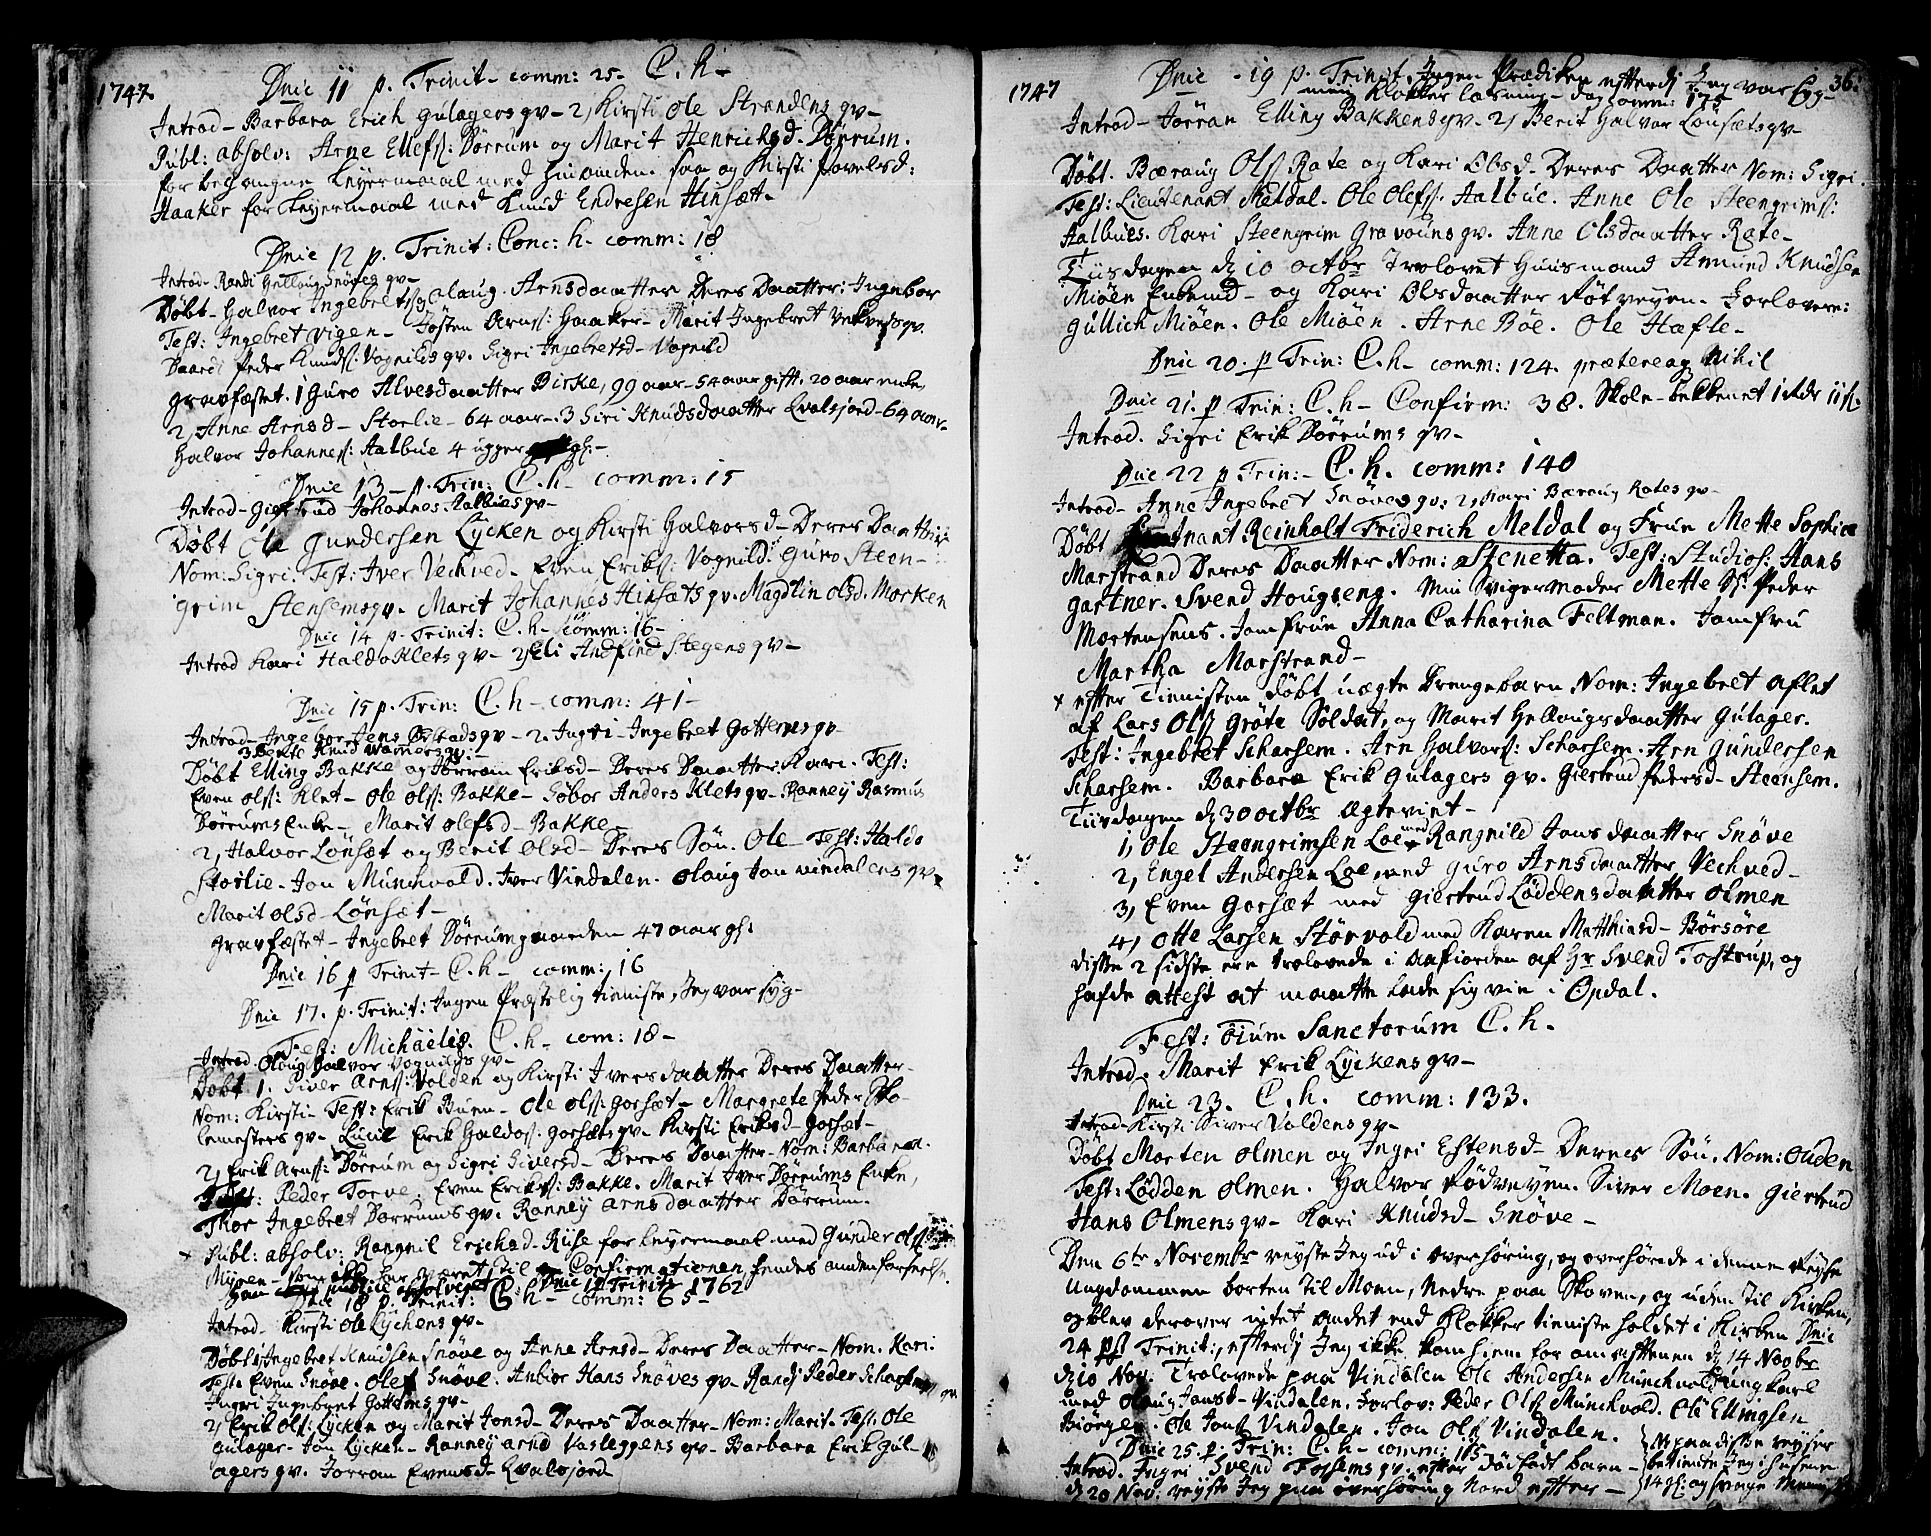 1747.
Dnic 11 p. Trinit - comm: 25 - C. h -
Introd - Barbara Erich Gulagers qv - 2, Kirsti Ole Strandens qv -
Publ: absolv: Arne Ellefs: Dörrum og Marit Henrichsd - Dörrum.
for begangne Leyermaal med hinanden. saa og Kirsti Povelsd:
Haaker for Leyermaal med Knud Endresen Hinsæt -
Dnic 12 p. Trinit: Conc: h - comm: 18
Introd - Randi Helloug Snöves qv -
Döbt - Halvor Ingebrets: Olaug Arnsdaatter Deres Daatter: Ingebor
Test: Ingebret Vigen - Josten Arns: Haaker - Marit Ingebret Vekveds qv.
Baardt Peder Knuds: Vognilds qv. Sigri Ingebretsd - Vognild
gravfæstet. 1 Guro Alvesdaatter Birke, 99 aar - 54 aar gift. 20 aar enke,
2, Anne Arnsd - Storlie - 64 aar - 3 Siri Knudsdaatter Qvalsjord - 64 aar -
Halvor Johannes: Aalbue 4 uger gl: -
Dnic 13 - p. Trin: C. h - comm: 15
Introd - Giertrud Johannes Aalbues qv -
Döbt Ole Gundersen Lycken og Kirsti Halvorsd - Deres Daatter
Nom: Sigri. Test: Iver Veckved - Even Eriks: Vognild. Guro Steen-
grim Stensems qv. Marit Johannes Hinsæts qv. Magdlin Olsd. Morken
Dnic 14 p. Trinit: C. h - comm: 16 -
Introd Kari Haldo Klets qv - 2, Eli Andfind Stegens qv -
Dnic 15 p. Trin: C. h - comm: 41 -
Introd - Ingebor Jens Östads qv - 2. Ingri - Ingebret Gottems qv -
3 Berte Knud Vamers qv. -
Döbt Elling Bakke og Jorran Eriksd - Deres Daatter. Kari. Test:
Even Ols: Klet - Ole Ols: Bakke - Söbor Anders Klets qv - Ranney Rasmus
Dörrums Enke - Marit Olefsd - Bakke -
2, Halvor Lönsæt og Berit Olsd - Deres Sön. Ole - Test: Haldo
Storlie - Jon Munchvold. Iver Vindalen. Olaug Jon Vindalens qv.
Marit Olsd - Lönsæt -
gravfæstet - Ingebret Dörrumgaarden 47 aar gl:
Dnic 16 p Trinit - C. h - comm: 16
Dnic 17. p. Trinit: Ingen Præstelig tieniste, Jeg var syg -
Fest: Michaëlis. C. h - com: 18 -
Introd. Olaug Halvor Vognilds qv -
Döbt 1. Siver Arns: Volden og Kirsti Iversdaatter Deres Daatter -
Nom: Kirsti - Test: Erik Buen - Ole Ols: Gorsæt - Margrete Peder Sko-
lemesters qv - Lucil Erik Haldos: Gorsæts qv - Kirsti Eriksd - Gorsæt -
2, Erik Arns: Dörrum og Sigri Siversd - Deres Daatter - Nom: Barbara.
Test: Peder Torve. Even Eriks: Bakke. Marit Iver Dörrums Enke,
Thor Ingebret Dorrums qv. Ranney Arnsdaatter Dörrum.
x Publ: absolv: Rangnil Erichsd - Riise for Leyermaal med Gunder Ols:
Mjoen - som ikke har været til Confirmationen, hendes anden forseelse.
Han publice absolveret Dnic 1 Trinit 1762
Dnic 18 p. Trinit: C. h - comm: 65 -
Introd - Kirsti Ole Lyckens qv -
Döbt 1, Ingebret Knudsen Snöve og Anne Arnsd - Deres Daatter - Nom. Kari.
Test. Even Snöve. Ole Snöve. Anbior Hans Snöves qv - Randi Peder Scharsems qv
Ingri Ingebret Gottems qv -
2, Erik Ols: Lycken og Marit Jonsd - Deres Daatter - Nom: Marit. Test: Ole
Gulager - Jon Lycken - Ranney Arnd Vasleggens qv - Barbara Erik Gul-
agers qv. Jorran Evensd - Qvalsjord
1747
36.
Dnic - 19 p. Trinit. Ingen Prædiken efterdi Jeg var syg -
men Klokker læsning - dog comm: 175
Introd - Jorran Elling Bakkens qv - 2, Berit Halvor Lönsæts qv -
Döbt. Bæraug Ols: Rate og Kari Olsd - Deres Daatter Nom: Sigri.
Test: Lieutenant Meldal. Ole Olefs: Aalbue. Anne Ole Steengrims:
Aalbues. Kari Steengrim Gravouns qv. Anne Olsdaatter Rate -
Tiisdagen d 10 octbr Trolovet Huusmand Amund Knudsen
Miöen Enkemd - og Kari Olsdaatter Rötveyen - Forlovere:
Gullich Miöen. Ole Miöen. Arne Böe. Ole Hæfle -
Dnic 20. p Trin: C. h - comm: 124. præterea Nihil
Dnic 21. p Trin: C. h - Confirm: 38. Skole-bekkenet 1 Rdr 11 s.
Introd. Sigri Erik Dörrums qv -
Dnic 22 p Trin: - C. h. comm: 140
Introd - Anne Ingebret Snöves qv: 2, Kari Bæraug Rates qv -
Döbt Lieutnant Reinholt Friderich Meldal og Frue Mette Sophia
Marstrand Deres Daatter Nom: Stenetta. Test: Studios: Hans
Gartner. Svend Hougseng. Min Svigermoder Mette Sl: Peder
Mortensens. Jomfrue Anna Catharina Feltman. Jomfru
Martha Marstrand -
x efter Tienisten döbt uægte Drengebarn Nom: Ingebret aflet
af Lars Ols: Gröte Soldat, og Marit Hellougsdaatter Gulager.
Test: Ingebret Scharsem. Arn Halvors: Scharsem. Arn Gundersen
Scharsem. Barbara Erik Gulagers qv. Giertrud Pedersd - Steensem.
Tiisdagen d 30 octbr Ægteviet -
1, Ole Steengrimsen Loe med Rangnild Jonsdaatter Snöve
2, Engel Andersen Loe med Guro Arnsdaatter Veckved -
3, Even Gorsæt med Giertrud Löddensdaatter Olmen
4, Otte Larsen Störvold med Karen Matthiasd - Börsöre
disse 2 sidste ere trolovede i Aafiorden af Hr Svend Tostrup, og
hafde attest at maatte lade sig vie i Opdal.
Fest: Oium Sanctorum C. h.
Introd. Marit Erik Lyckens qv -
Dnic 23. C. h. comm: 133.
Introd - Kirsti Siver Voldens qv -
Döbt Morten Olmen og Ingri Estensd - Deres Sön. Nom: Ouden
Test: Lödden Olmen. Halvor Rödveyen. Siver Moen. Giertrud
Hans Olmens qv - Kari Knudsd - Snöve -
Den 6te Novembr reyste Jeg ud i overhöring, og overhörede i denne Reyse
Ungdommen borten til Moen, Nedre paa Skoven, og uden til Kirken,
og blev derover intet andet end Klokker tieniste holdet i Kirken Dnic
24 pst Trinit:, efterdi Jeg ikke kom hiem for om aftenen d 14 Novbr
d 10 Nov. Trolovede paa Vindalen Ole Andersen Munchvold ungkarl
med Olaug Jonsd - Vindalen. Forlov: Peder Ols: Munchvold. Ole Ellingsen
Biörgen. Ole Jons: Vindalen. Jon Ols: Vindalen.
Dnic 25. p. Trin: C. h - comm: 115
Introd. Inger Svend Forsems qv. efter dödfödt barn -
d 20 Nov: reyste Jeg paa overhöring Nord efter -
NB paa disse reyser
betiente Jeg i husene
14 gl: og svage Mennis: